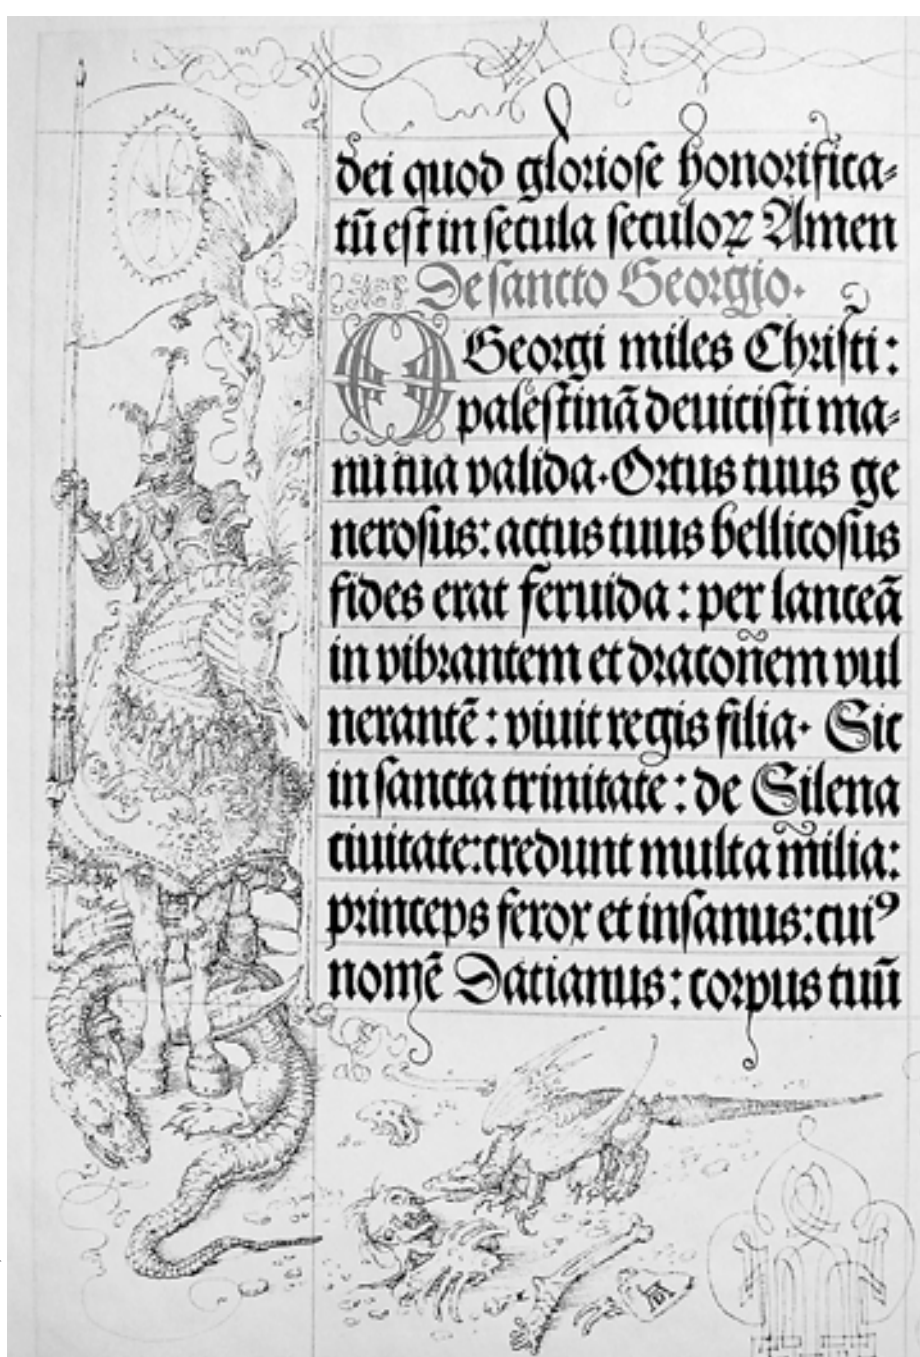 dei quod glorioſe honorifica⸗
tū eſt in ſecula ſeculoꝝ Amen
De ſancto Georgio.
O Georgi miles Chriſti:
paleſtinā deuiciſti ma⸗
nu tua valida. Ortus tuus ge
neroſus: actus tuus bellicoſus
fides erat feruida: per lanceā
in vibrantem et dracon̄em vul
nerantē: viuit regis filia. Sic
in ſancta trinitate: de Silena
ciuitate: credunt multa m̄ilia:
princeps ferox et inſanus: cuiꝰ
nomē Dacianus: corpus tuū
AD